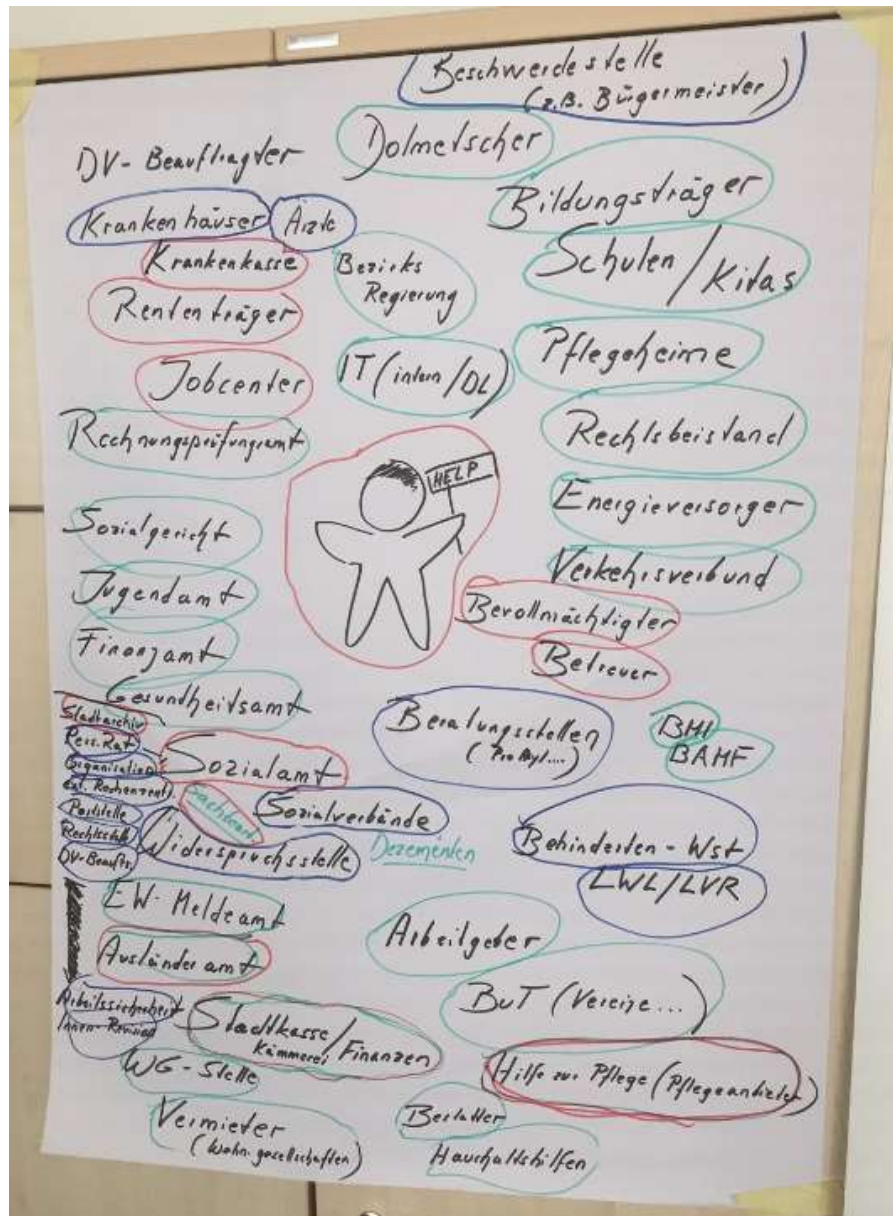 Beschwerdestelle
(z.B. Bürgermeister)
Dolmetscher
DV-Beauftragter
Bildungsträger
Krankenhäuser
Ärzte
Krankenkasse
Bezirks
Regierung
Schulen / Kitas
Rententräger
Pflegeheime
Jobcenter
IT (intern / DL)
Rechnungsprüfungsamt
Rechtsbeistand
HELP
Energieversorger
Sozialgericht
Verkehrsverbund
Jugendamt
Bevollmächtigter
Finanzamt
Betreuer
Gesundheitsamt
Stadtarchiv
Pers.Rat
Organisation
Ext. Rechenzent.
Poststelle
Rechtsstelle
DV-Beauftr.
Sozialamt
Beratungsstellen
BMI
BAMF
Sozialverbände
Widerspruchsstelle
Dezernenten
Behinderten-Wst
LWL/LVR
EW-Meldeamt
Ausländeramt
Arbeitgeber
Arbeitssicherheit
Innen-Revision
BuT (Vereine...)
Stadtkasse /
Kämmerei Finanzen
Hilfe zur Pflege (Pflegeanbieter)
WG-Stelle
Vermieter
(Wohn.gesellschaften)
Bestatter
Haushaltshilfen